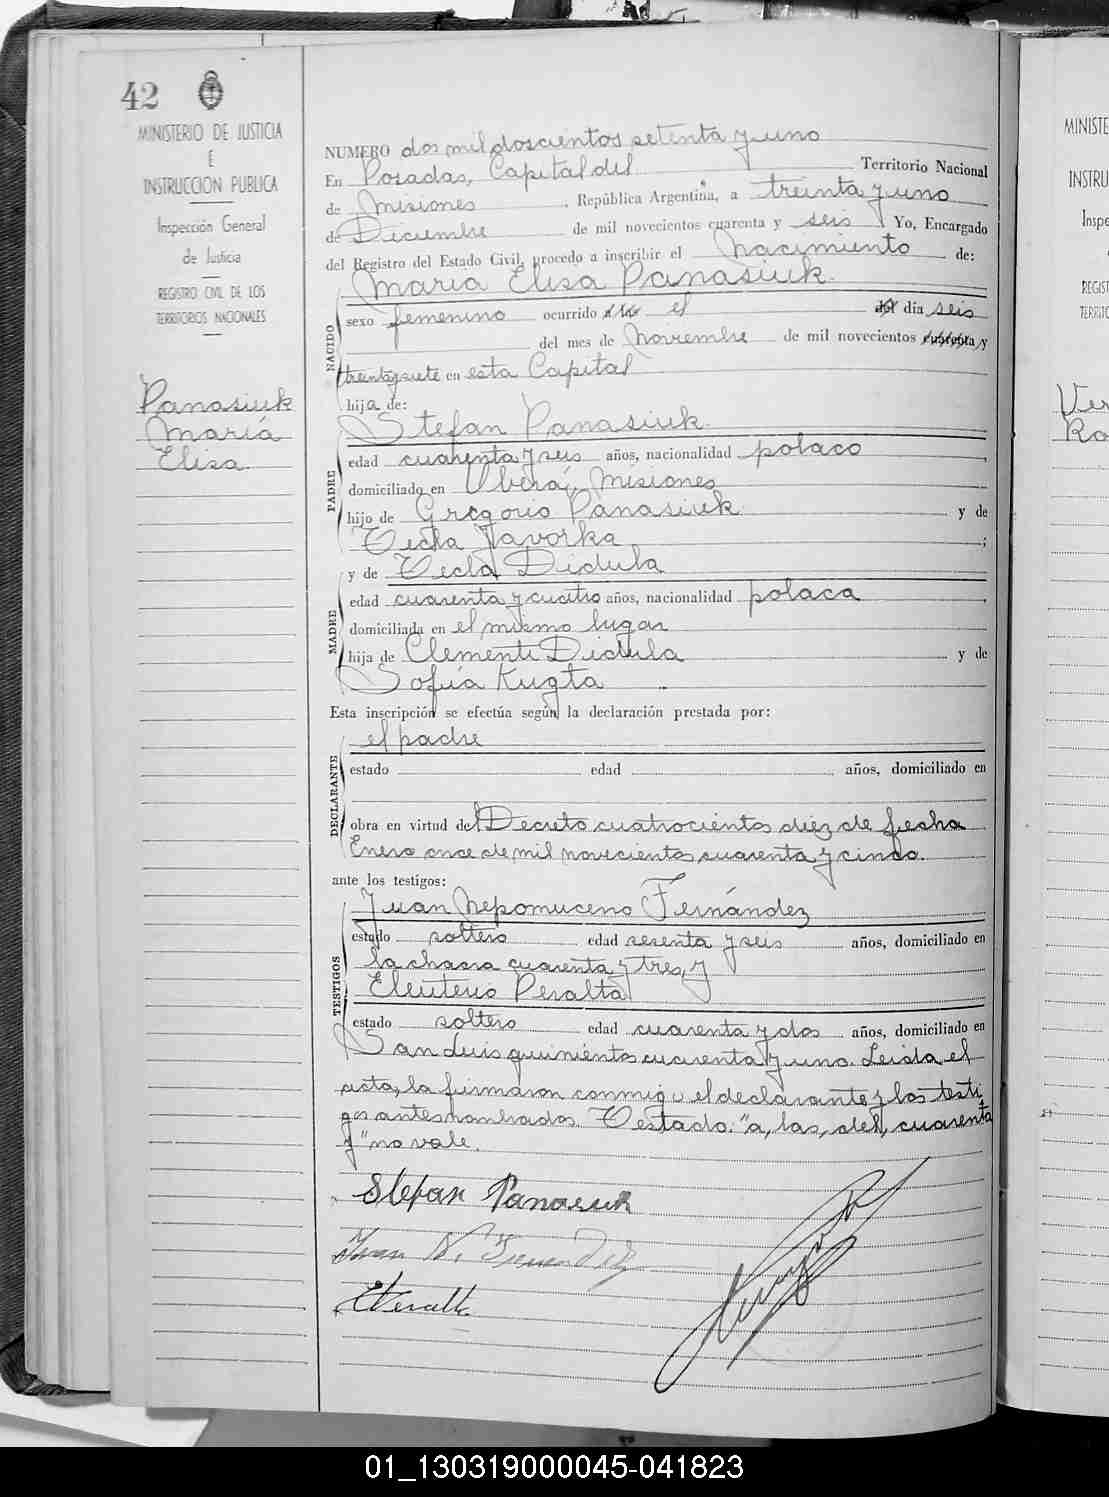 42
MINISTERIO DE JUSTICIA
E
INSTRUCCION PUBLICA
Inspección General
de Justicia
REGISTRO CIVIL DE LOS
TERRITORIOS NACIONALES
Panasiuk
María
Elisa
NUMERO dos mil doscientos setenta y uno
En Posadas, Capital del Territorio Nacional
de Misiones, República Argentina, a treinta y uno
de Diciembre de mil novecientos cuarenta y seis Yo, Encargado
del Registro del Estado Civil, procedo a inscribir el nacimiento de:
María Elisa Panasiuk.
NACIDO
sexo femenino ocurrido el del día seis
del mes de Noviembre de mil novecientos cuarenta y
treinta y siete en esta Capital
hija de:
Stefan Panasiuk.
PADRE
edad cuarenta y seis años, nacionalidad polaco
domiciliado en Oberá, Misiones
hijo de Gregorio Panasiuk y de
Tecla Javorka;
y de Tecla Didula
MADRE
edad cuarenta y cuatro años, nacionalidad polaca
domiciliada en el mismo lugar
hija de Clemente Didula y de
Sofía Kugta
Esta inscripción se efectúa según la declaración prestada por:
el padre
DECLARANTE
estado edad años, domiciliado en
obra en virtud del Decreto cuatrocientos diez de fecha
Enero once de mil novecientos cuarenta y cinco.
ante los testigos:
Juan Nepomuceno Fernández
TESTIGOS
estado soltero edad sesenta y seis años, domiciliado en
la chacra cuarenta y tres, y
Eleuterio Peralta
estado soltero edad cuarenta y dos años, domiciliado en
San Luis quinientos cuarenta y uno. Leída el
acta, la firmaron conmigo el declarante y los testi
gos antes nombrados. Testado: "a, las, del, cuarenta
y" no vale.
Stefan Panasiuk
Juan N. Fernandez
EPeralta
MINISTE
INSTRU
Inspe
REGIST
TERRITO
Ver
Ra
01_130319000045-041823